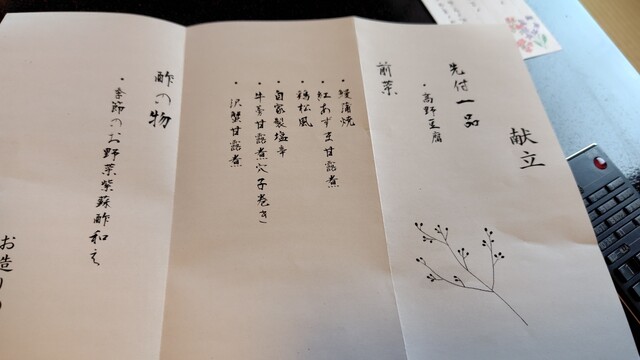 献立
先付一品
・高野豆腐
前菜
・鰻蒲焼
・紅あずま甘露煮
・鶏松風
・自家製塩辛
・牛蒡甘露煮穴子巻き
・沢蟹甘露煮
酢の物
・季節のお野菜紫蘇酢和え
お造り